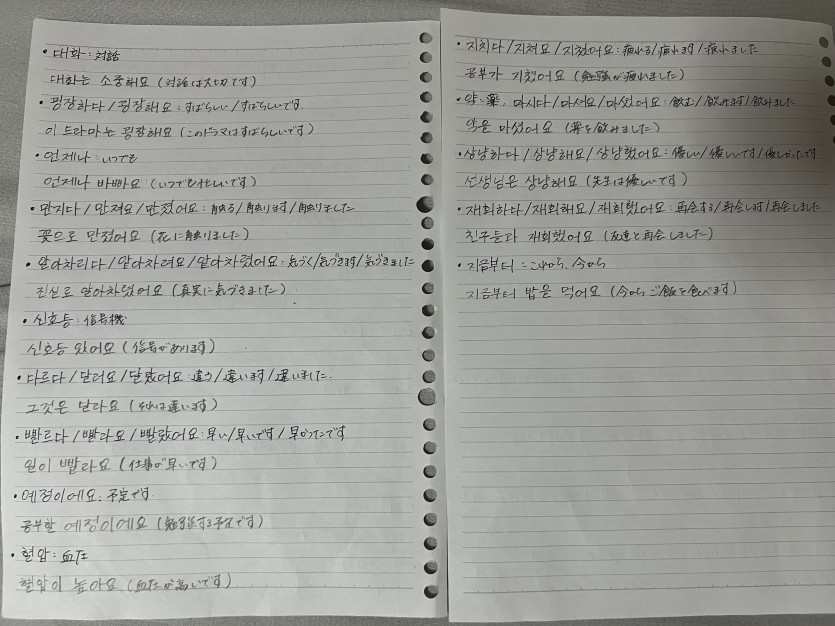 • 대화 : 対話
대화는 소중해요 (対話は大切です)
• 굉장하다 / 굉장해요 : すばらしい / すばらしいです
이 드라마는 굉장해요 (このドラマはすばらしいです)
• 언제나 : いつでも
언제나 바빠요 (いつでも忙しいです)
• 만지다 / 만져요 / 만졌어요 : 触る / 触ります / 触りました
꽃으로 만졌어요 (花に触りました)
• 알아차리다 / 알아차려요 / 알아차렸어요 : 気づく / 気づきます / 気づきました
진실로 알아차렸어요 (真実に気づきました)
• 신호등 : 信号機
신호등 있어요 (信号があります)
• 다르다 / 달러요 / 달랐어요 : 違う / 違います / 違いました
그것은 달라요 (それは違います)
• 빨르다 / 빨라요 / 빨랐어요 : 早い / 早いです / 早かったです
일이 빨라요 (仕事が早いです)
• 예정이에요 : 予定です
공부할 예정이에요 (勉強する予定です)
• 혈압 : 血圧
혈압이 높아요 (血圧が高いです)
• 지치다 / 지쳐요 / 지쳤어요 : 疲れる / 疲れます / 疲れました
공부가 지쳤어요 (勉強が疲れました)
• 약 : 薬, 마시다 / 마셔요 / 마셨어요 : 飲む / 飲みます / 飲みました
약을 마셨어요 (薬を飲みました)
• 상냥하다 / 상냥해요 / 상냥했어요 : 優しい / 優しいです / 優しかったです
선생님은 상냥해요 (先生は優しいです)
• 재회하다 / 재회해요 / 재회했어요 : 再会する / 再会します / 再会しました
친구들다 재회했어요 (友達と再会しました)
• 지금부터 : これから、今から
지금부터 밥을 먹어요 (今からご飯を食べます)